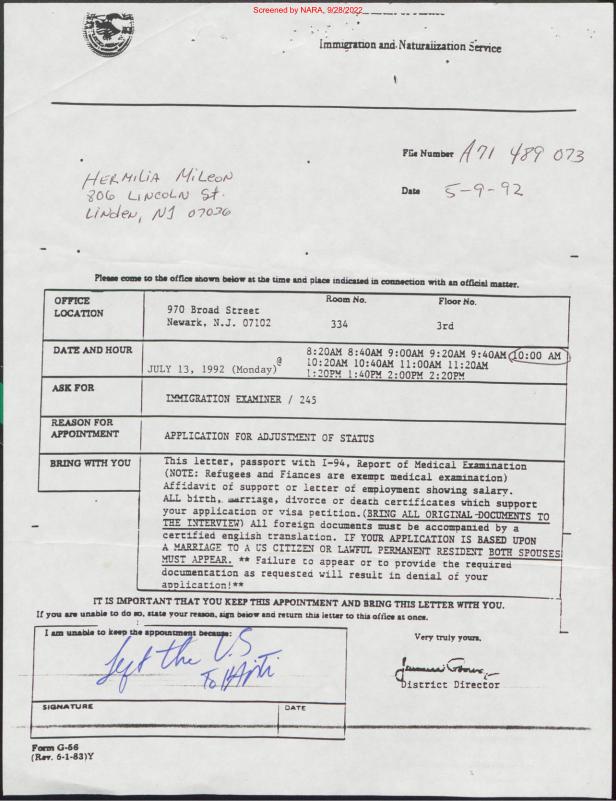 Screened by NARA, 9/28/2022
Immigration and Naturalization Service
File Number A71 489 073
Date 5-9-92
HERMILIA MiLeoN
806 LINCOLN St.
Linden, NJ 07036
Please come to the office shown below at the time and place indicated in connection with an official matter.
OFFICE LOCATION
970 Broad Street
Newark, N.J. 07102
Room No.
334
Floor No.
3rd
DATE AND HOUR
JULY 13, 1992 (Monday) @
8:20AM 8:40AM 9:00AM 9:20AM 9:40AM 10:00 AM
10:20AM 10:40AM 11:00AM 11:20AM
1:20PM 1:40PM 2:00PM 2:20PM
ASK FOR
IMMIGRATION EXAMINER / 245
REASON FOR
APPOINTMENT
APPLICATION FOR ADJUSTMENT OF STATUS
BRING WITH YOU
This letter, passport with I-94, Report of Medical Examination
(NOTE: Refugees and Fiances are exempt medical examination)
Affidavit of support or letter of employment showing salary.
ALL birth, marriage, divorce or death certificates which support
your application or visa petition.(BRING ALL ORIGINAL DOCUMENTS TO
THE INTERVIEW) All foreign documents must be accompanied by a
certified english translation. IF YOUR APPLICATION IS BASED UPON
A MARRIAGE TO A US CITIZEN OR LAWFUL PERMANENT RESIDENT BOTH SPOUSES
MUST APPEAR. ** Failure to appear or to provide the required
documentation as requested will result in denial of your
application!**
IT IS IMPORTANT THAT YOU KEEP THIS APPOINTMENT AND BRING THIS LETTER WITH YOU.
If you are unable to do so, state your reason, sign below and return this letter to this office at once.
I am unable to keep the appointment because:
Left the U.S
To HAiti
SIGNATURE
DATE
Very truly yours,
District Director
Form G-56
(Rev. 6-1-83)Y